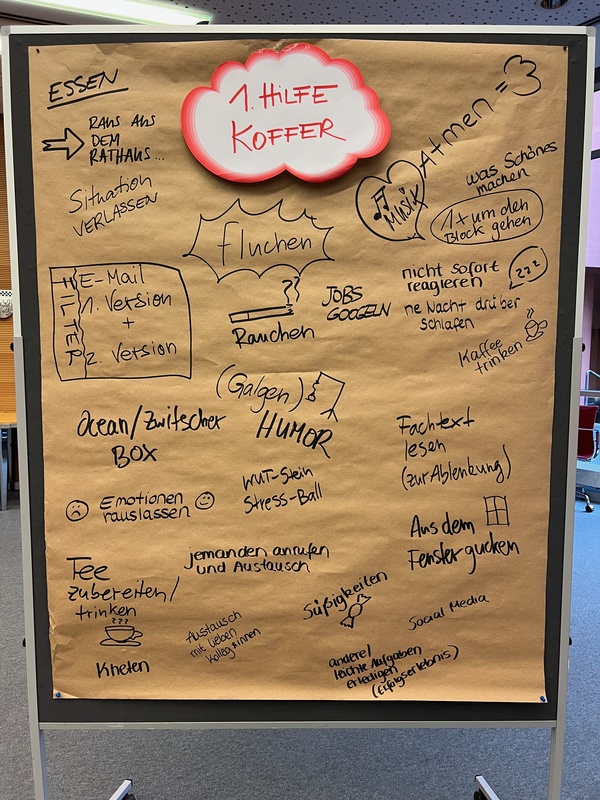 1. HILFE
KOFFER
ESSEN
RAUS AUS
DEM
RATHAUS...
Situation
VERLASSEN
fluchen
Atmen =3
MUSIK
was Schönes
machen
1x um den
Block gehen
FILTER
E-Mail
1. Version
+
2. Version
??
Rauchen
JOBS
GOOGELN
nicht sofort
reagieren
zzz
ne Nacht drüber
schlafen
Kaffee
trinken
(Galgen)
HUMOR
Ocean/Zwitscher
BOX
Fachtext
lesen
(zur Ablenkung)
WUT-Stein
Stress-Ball
Emotionen
rauslassen
Aus dem
Fenster gucken
jemanden anrufen
und Austausch
Tee
zubereiten/
trinken
Kneten
Austausch
mit lieben
Kolleg*innen
Süßigkeiten
Social Media
andere/
leichte Aufgaben
erledigen
(Erfolgserlebnis)